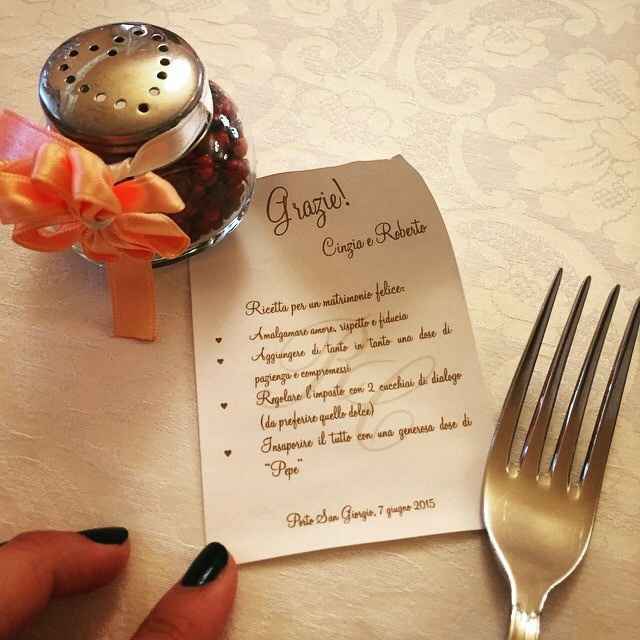 Grazie!
Cinzia e Roberto
Ricetta per un matrimonio felice:
Amalgamare amore, rispetto e fiducia
Aggiungere di tanto in tanto una dose di
pazienza e compromessi
Regolare l'impasto con 2 cucchiai di dialogo
(da preferire quello dolce)
Insaporire il tutto con una generosa dose di
"Pepe"
Porto San Giorgio, 7 giugno 2015